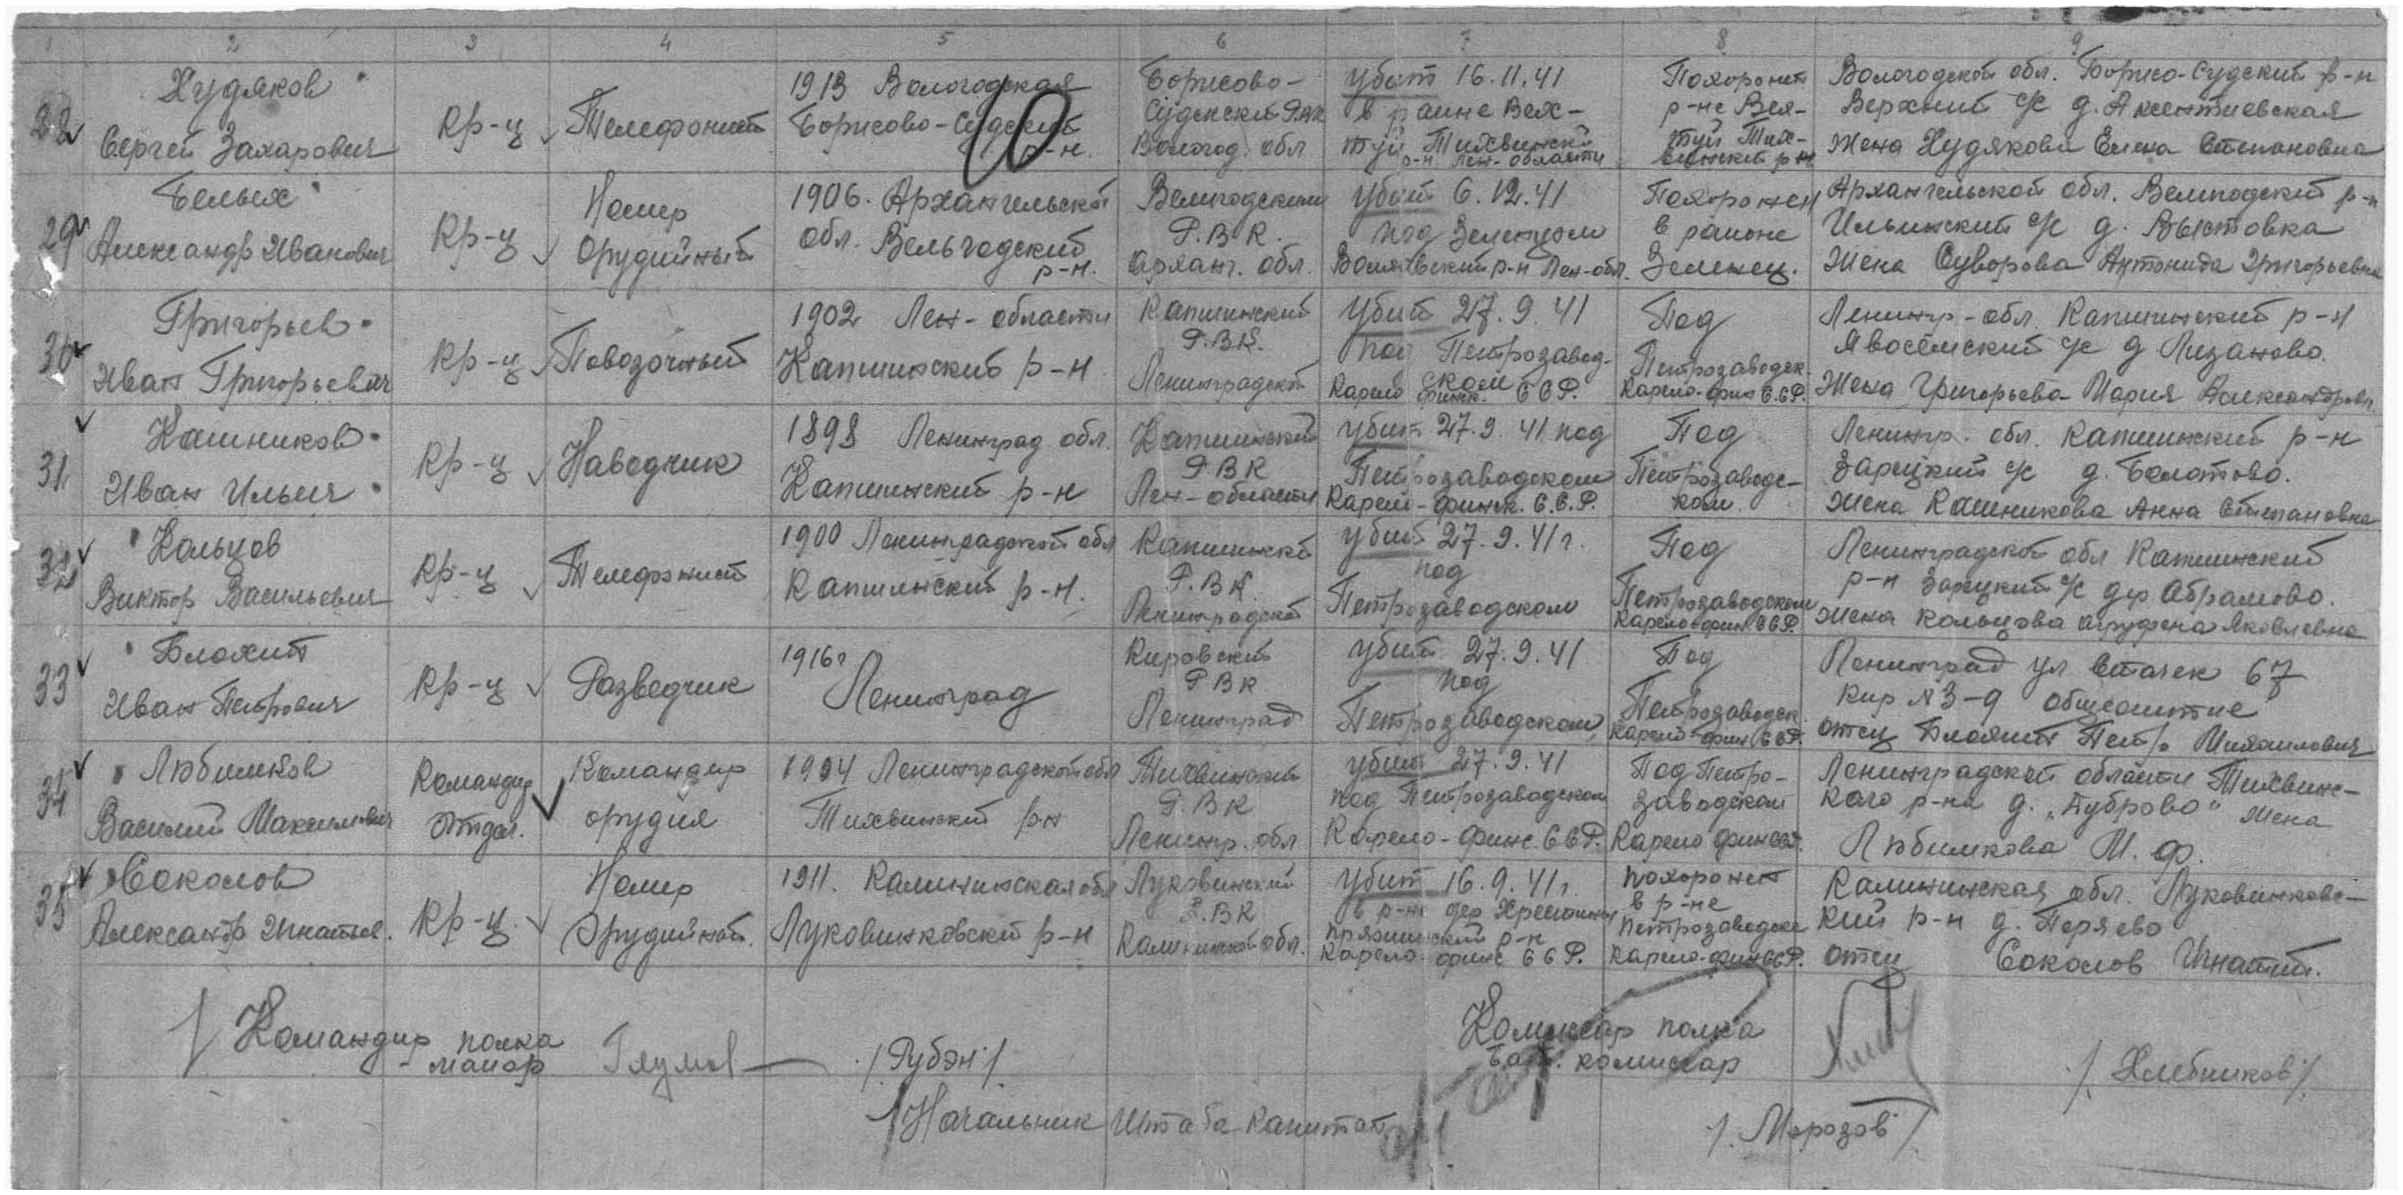 1 2 3 4 5 6 7 8 9
28 Худяков
Сергей Захарович
Кр-ц
Телефонист
1913 Вологодская
Борисово-Судский
р-н.
Борисово-
Судский РВК
Вологод. обл
убит 16.11.41
в раине Вях-
туй Тихвинский
р-н Лен-области
Похоронен
р-не Вях-
туй Тих-
винский р-н
Вологодской обл. Борисо-Судский р-н
Верхний с/с д. Аксентиевская
Жена Худякова Елена Степановна
29 Белых
Александр Иванович
Кр-ц
Номер
Орудийный
1906. Архангельской
обл. Вельгодский
р-н.
Велигодским
Р.В.К.
Арханг. обл.
Убит 6.12.41
под Зеленцом
Волховский р-н Лен-обл.
Похоронен
в районе
Зеленец.
Архангельской обл. Велигодский р-н
Ильинский с/с д. Выстовка
Жена Суворова Антонида Григорьевна
30 Григорьев
Иван Григорьевич
Кр-ц
Повозочный
1902 Лен-области
Капшинский р-н
Капшинский
Р.В.К.
Ленинградской
Убит 27.9.41
под Петрозавод-
ском
Карело финск. ССР.
Под
Петрозаводск.
Карело-фин С.СР.
Ленингр-обл. Капшинский р-н
Явосемский с/с д Лизаново.
Жена Григорьева Мария Александровн.
31. Кашников
Иван Ильич
Кр-ц
Наводчик
1898 Ленинград обл.
Капшинский р-н
Капшинский
РВК
Лен-области
убит 27.9.41 под
Петрозаводском
Карело-финск. С.С.Р.
Под
Петрозаводс-
ком
Ленингр. обл. Капшинский р-н
Зарецкий с/с д. Болотово.
Жена Кашникова Анна Степановна
32 Кольцов
Виктор Васильевич
Кр-ц
Телефонист
1900 Ленинградской обл
Капшинский р-н.
Капшинский
Р.В.К.
Ленинградской
убит 27.9.41г.
под
Петрозаводском
Под
Петрозаводском
Карело-фин ССР.
Ленинградской обл Капшинский
р-н Зарецкий с/с дер Абрамово.
Жена Кольцова Агруфена Яковлевна
33 Блохит
Иван Петрович
Кр-ц
Разведчик
1916г
Ленинград
Кировский
РВК
Ленинград
убит 27.9.41
под
Петрозаводском
Под
Петрозаводск.
Карело-фин ССР.
Ленинград ул Стачек 67
Кир з-д общежитие
отец Блохит Петр Михаилович
34 Любимков
Василий Максимович
Командир
Отдел.
Командир
орудия
1904 Ленинградской обл
Тихвинский р-н
Тихвинский
Р.В.К
Ленингр. обл
убит 27.9.41
под Петрозаводском
Карело-финс. ССР.
Под Петро-
заводском
Карело фин ССР.
Ленинградской области Тихвинс-
каго р-на д. „Дуброво" жена
Любимкова М. Ф.
35 Соколов
Александр Игнатов.
Кр-ц.
Номер
Орудийной.
1911. Калининская обл
Луковинковский р-н
Луковинский
Р.ВК
Калининской обл.
Убит 16.9.41г.
в р-не дер
р-н
Карело финс ССР.
Похоронен
в р-не
Петрозаводска
Карело-фин ССР.
Калининская обл. Луковинковс-
кий р-н д. Перяево
отец Соколов Игнатий.
/ Командир полка
- маиор
/Рубэн/
Комиссар полка
Бат. комиссар
/. Хлебников /.
/Начальник Штаба Капитан
/. Морозов /
10